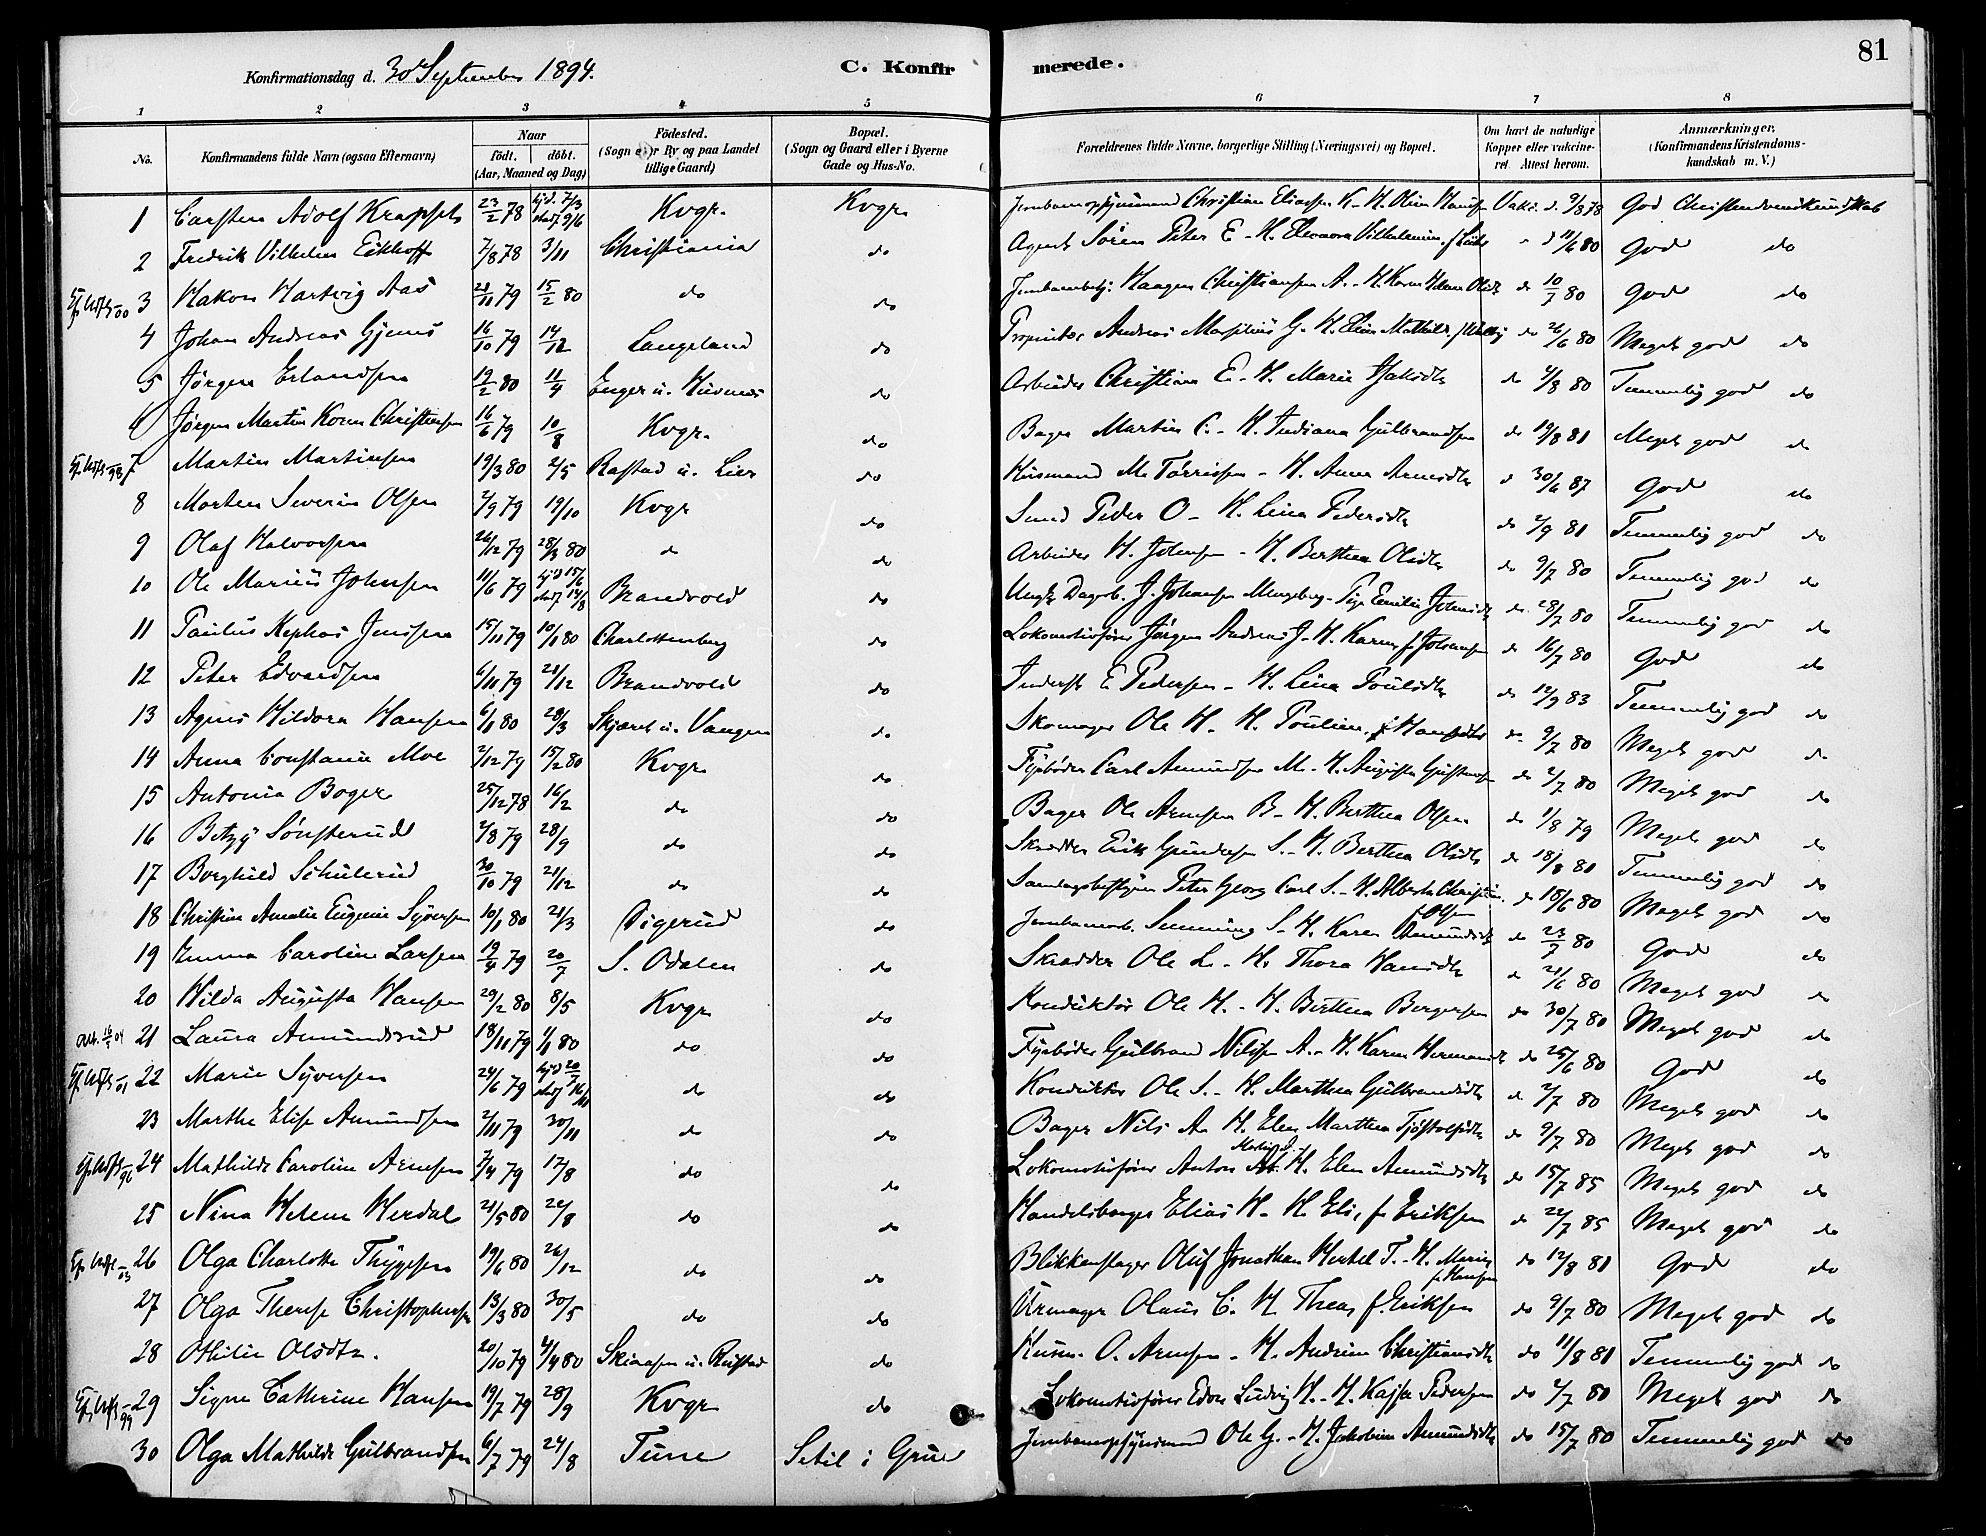 81
Konfirmationsdag d. 30 September 1894. C. Konfirmerede.
1 2 3 4 5 6 7 8
No. Konfirmandens fulde Navn (ogsaa Efternavn) Naar födt. döbt. (Aar, Maaned og Dag) Födested. (Sogn eller By og paa Landet tillige Gaard) Bopæl. (Sogn og Gaard eller i Byerne Gade og Hus-No. Forældrenes fulde Navne, borgerlige Stilling (Næringsvei) og Bopæl. Om havt de naturlige Kopper eller vakcineret. Attest herom. Anmærkninger, (Konfirmandens Kristendomskundskab m. V.)
1 Carsten Adolf 23/2 78 hjd. 7/3 stadf 9/6 Kvgr. Kvgr. Christian Eliassen K. H. Oline Vaks. d. 9/8 78 God Christendomskundskab
2 Fredrik Vilhelm Eikhoff 7/8 78 3/11 Christiania do Agent Sören Peter E - H. Eleonora 11/6 80 God do
3 Hakon Hartvig Aas 21/11 79 15/2 80 do do Haagen Christiansen A. - H. Karen do 10/7 80 God do
4 Johan Andreas Gjems 16/10 79 14/12 Langeland do Proprietær Andreas G. H. Eline Mathilde do 26/6 80 Meget god do
5 Jörgen Erlandsen 19/2 80 11/4 Enger u. do Arbeider Christian E - H. Marie do 4/8 80 Temmelig god do
6 Jörgen Martin Korn Christensen 16/6 79 10/8 Kvgr. do Bager Martin C. - H. Indiana Gulbrandsen do 19/8 81 Meget god do
7 Martin Martinsen 19/3 80 2/5 Rastad u. Lier do Husmand M. Törrissen - H. Anna Arnesdtr d 30/6 87 God do
8 Morten Severin Olsen 2/9 79 19/10 Kvgr do Smed Peder O - H. Lina Pedersdtr do 2/9 81 Temmelig god do
9 Olaf Halvorsen 26/12 79 28/3 80 d do Arbeider H. Johnsen - H. Berthea Olsdtr do 9/7 80 Temmelig god do
10 Ole Marius Johnsen 11/6 79 hjd 15/6 stadf 14/8 Brandvold do Ungk. Dagarb. J. Johansen - Pige Emilie do 28/7 80 Temmelig god do
11 Paulus Kephas Jensen 15/11 79 10/1 80 Charlottenberg do Lokomotivförer Jörgen Andreas J - H. Karen f. Johansen d 16/7 80 God do
12 Peter Edvardsen 6/10 79 21/12 Brandvold do Inderst E Pedersen - H. Lina Poulsdtr do 12/9 83 Temmelig god do
13 Agnes Hildora Hansen 6/1 80 28/3 Skjæret u. Vangen do Skomager Ole H - H. Pouline do 9/7 80 Meget god do
14 Anna Constance Moe 2/12 79 15/2 80 Kvgr do Fyrböder Carl Amundsen M - H. Augusta do 2/7 80 Meget god do
15 Antonia Boger 25/12 78 16/2 do do Bager Ole Arnesen B - H. Berthea Olsen do 1/8 79 Meget god do
16 Betzy Sönsterud 2/8 79 28/9 do do Skrædder Erik Gundersen S. - H. Berthea Olsdtr d 18/8 80 Temmelig god do
17 Borghild Schulerud 30/10 79 21/12 do do Peter Georg Carl S. - H. Alberta f. Olsen do 18/6 80 Meget god do
18 Christine Amalie Eugenie Syversen 10/1 80 21/3 Digerud do S - H. Karen Amundsdtr do 23/7 80 God do
19 Emma Caroline Larsen 19/4 79 20/7 S. Odalen do Skrædder Ole L. - H. Thora Hansdtr d 21/6 80 Meget god do
20 Hilda Augusta Hansen 29/2 80 8/5 Kvgr do Konduktör Ole H. - H. Berthea Bergersen do 30/7 80 Meget god do
21 Laura Amundsrud 18/11 79 1/1 80 do do Fyrböder Gulbrand Nilsen A. - H. Karen do 25/6 80 God do
22 Marie Syversen 24/6 79 hjd 20/7 stadf 16/11 do do Konduktör Ole S. - H. Marthea Gulbrandsdtr d 2/7 80 Meget god do
23 Marthe Elise Amundsen 2/11 79 30/11 do do Bager Nils A H. Elen Marthea do 9/7 80 Meget god do
24 Mathilde Caroline Arnesen 7/4 79 17/8 do do Lokomotivförer Anton H. Elen Amundsdtr do 15/7 85 Meget god do
25 Nina Helene Herdal 21/5 80 22/8 do do Handelsborger Elias H - H. Elis. f. Eriksen do 22/7 85 Meget god do
26 Olga Charlotte Thygesen 19/6 80 26/12 do do Blikkenslager Oluf Jonathan Hertel T. - H. f. Hansen do 12/8 81 God do
27 Olga Therese Christophersen 13/3 80 30/5 do do Urmager Olaus C. H Thea f. Eriksen do 9/7 80 Meget god do
28 Othilie Olsdtr. 20/10 79 4/4 80 Skiaasen u. Rustad do Husm. O. Arnesen - H. Andrine Christiansdtr do 11/8 81 Temmelig god do
29 Signe Cathrine Hansen 19/7 79 28/9 Kvgr do Lokomotivförer Edv. Ludvig H. - H. Kajsa Pedersen do 2/7 80 Meget god do
30 Olga Mathilde Gulbrandsen 6/7 79 24/8 Tune Setil i Grue Ole G. - H. Jakobine Amundsdtr do 15/7 80 Temmelig god do